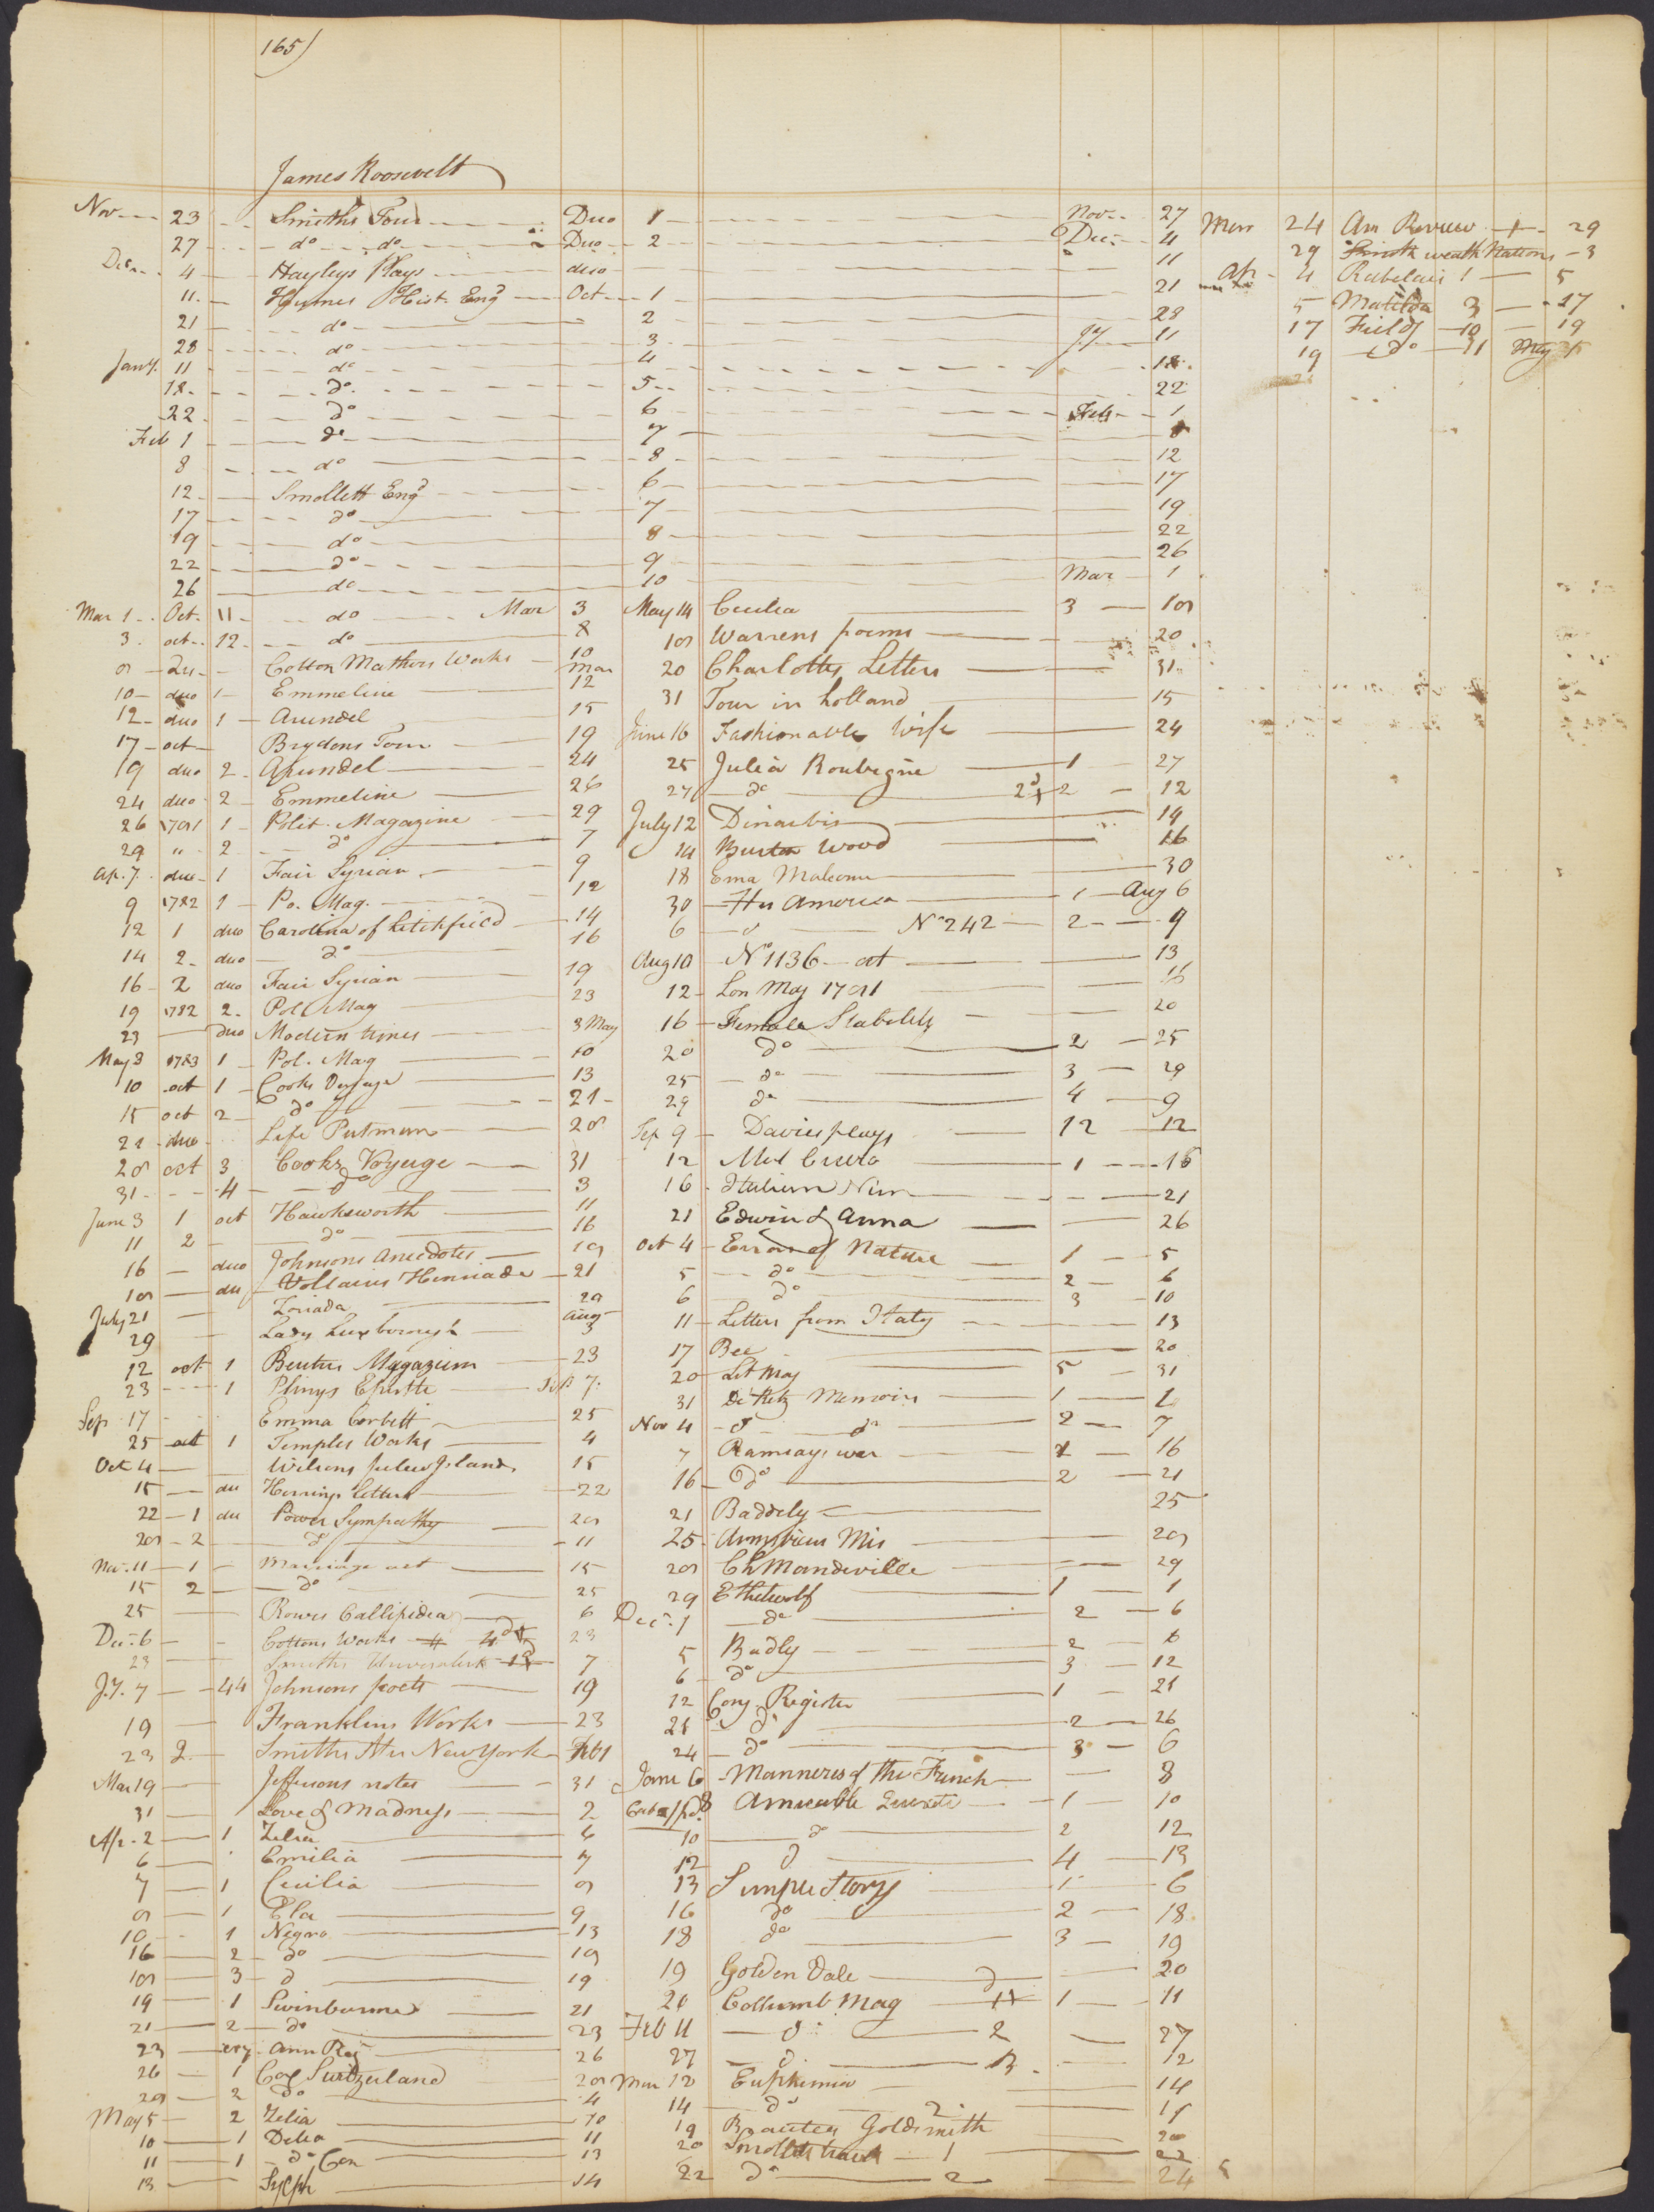 165)
James Roosevelt
Nov 23 Smiths Tour Duo 1 Nov 27
27 do do Duo 2 Dec 4
Dec 4 Hayleys Plays duo 11
11 Humes Hist. Engd Oct 1 21
21 do 2 28
28 do 3 Jy 11
Jany. 11 do 4 18
18 do 5 22
22 do 6 Feb 1
Feb 1 do 7 8
8 do 8 12
12 Smollett Engd 6 17
17 do 7 19
19 do 8 22
22 do 9 26
26 do 10 Mar 1
Mar 1 Oct 11 do Mar 3
3 oct 12 do 8
8 Cotton Mathers Works 10
10 duo 1 Emmeline Mar 12
12 duo 1 Arundel 15
17 oct Brydons Tour 19
19 duo 2 Arundel 24
24 duo 2 Emmeline 26
26 1781 1 Polit. Magazine 29
29 " 2 do 7
Ap. 7 duo 1 Fair Syrian 9
9 1782 1 Po. Mag. 12
12 1 duo Carolina of Litchfield 14
14 2 duo do 16
16 2 duo Fair Syrian 19
19 1782 2 Pol Mag 23
23 duo Modern times 3 May
May 3 1783 1 Pol. Mag 10
10 oct 1 Cooks Voyage 13
15 oct 2 do 21
21 duo Life Putman 28
28 oct 3 Cooks Voyage 31
31 4 do 3
June 3 1 oct Hawksworth 11
11 2 do 16
16 duo Johnsons Anecdotes 18
18 du Voltaires Henriade 21
July 21 Loriada 29
29 Lady Luxborough Aug 3
12 oct 1 23
23 1 Plinys Epistle Sep 7
Sep 17 Emma Corbett 25
25 oct 1 Temples Works 4
Oct 4 Wilsons Pelew Islands 15
15 du Herrings Letters 22
22 1 du Power Sympathy 28
28 2 do 11
Nov. 11 1 Marriage act 15
15 2 do 25
25 Rowes Callipidea 6
Dec. 6 Cottons Works 23
23 Smiths 7
J.y. 7 44 Johnsons poets 19
19 Franklins Works 23
23 2 Smiths New York Feb 1
Mar 19 Jeffersons notes 31
31 Love & Madness 2
Ap. 2 1 Zelia 6
6 Emilia 7
7 1 Cecilia 8
8 1 Ela 9
10 1 Negro 13
16 2 do 18
18 3 do 19
19 1 Swinburnes 21
21 2 do 23
23 Ann Reg 26
26 1 Cox Switzerland 28
29 2 do 4
May 5 2 Zelia 10
10 1 Delia 11
11 1 do 13
13 Sylph 14
May 14 Cecilia 3 18
18 Warrens poems 20
20 Charlottes Letters 31
31 Tour in holland 15
June 16 Fashionable Wife 24
25 Julia Roubigne 1 27
27 do 2 12
July 12 Dinarbis 14
14 Burton Wood 16
18 30
30 His America 1 Aug 6
6 do No 242 2 9
Aug 10 No 1136 oct 13
12 Lon Mag 1781 16
16 Female Stability 20
20 do 2 25
25 do 3 29
29 do 4 9
Sep 9 Davies plays 12 12
12 1 16
16 Italian Nun 21
21 Edwin & Anna 26
Oct 4 Errors of Nature 1 5
5 do 2 6
6 do 3 10
11 Letters from Italy 13
17 Bee 20
20 Lit Mag 5 31
31 De Retz Memoirs 1
Nov 4 do do 2 7
7 Ramsays war 1 16
16 Do 2 21
21 Baddely 25
25 Mis 28
28 Ch Mandeville 29
29 Ethelwolf 1 1
Dec. 1 do 2 6
5 Badly 2 6
6 do 3 12
12 Cong. Register 1 21
21 do 2 26
24 do 3 6
Jany 6 Manners of the French 8
8 Amicable Quixote 1 10
10 do 2 12
12 do 4 13
13 Simple Story 1 6
16 do 2 18
18 do 3 19
19 Golden Vale 20
20 Collumb. Mag 1 11
Feb 11 do 2 27
27 do 3 12
Mar 12 Euphemia 14
14 do 2
19 Beauties Goldsmith 20
20 Smolletts travels 1 22
22 do 2 24
Mar 24 Am Review 1 29
29 Smith wealth Nations 3
Ap 4 Rabelais 1 5
5 Matilda 3 17
17 Fieldg 10 19
19 do 11 May